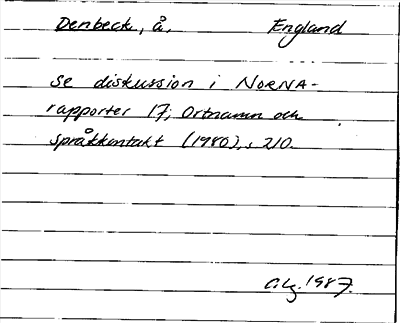 Denbeck, å. England
se diskussion i NORNA-
rapporter 17; Ortnamn och
språkkontakt (1980), s 210.
C.Lg. 1987.